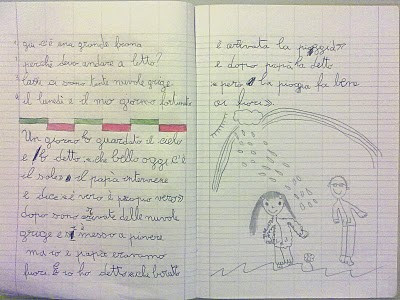 qui c'è una grande buona
perché devo andare a letto?
lassù ci sono tante nuvole grige
il lunedì è il mio giorno fortunato
Un giorno ho guardato il cielo
e ho detto «che bello oggi c'è
il sole» il papà interviene
e dice «sì vero è propio vero»
dopo sono arrivate delle nuvole
grige e si è messo a piovere
ma io e papà eravamo
fuori. E io ho detto «che
e arrivata la pioggia»
e dopo papà ha detto
«però la pioggia fa bene
ai fiori».